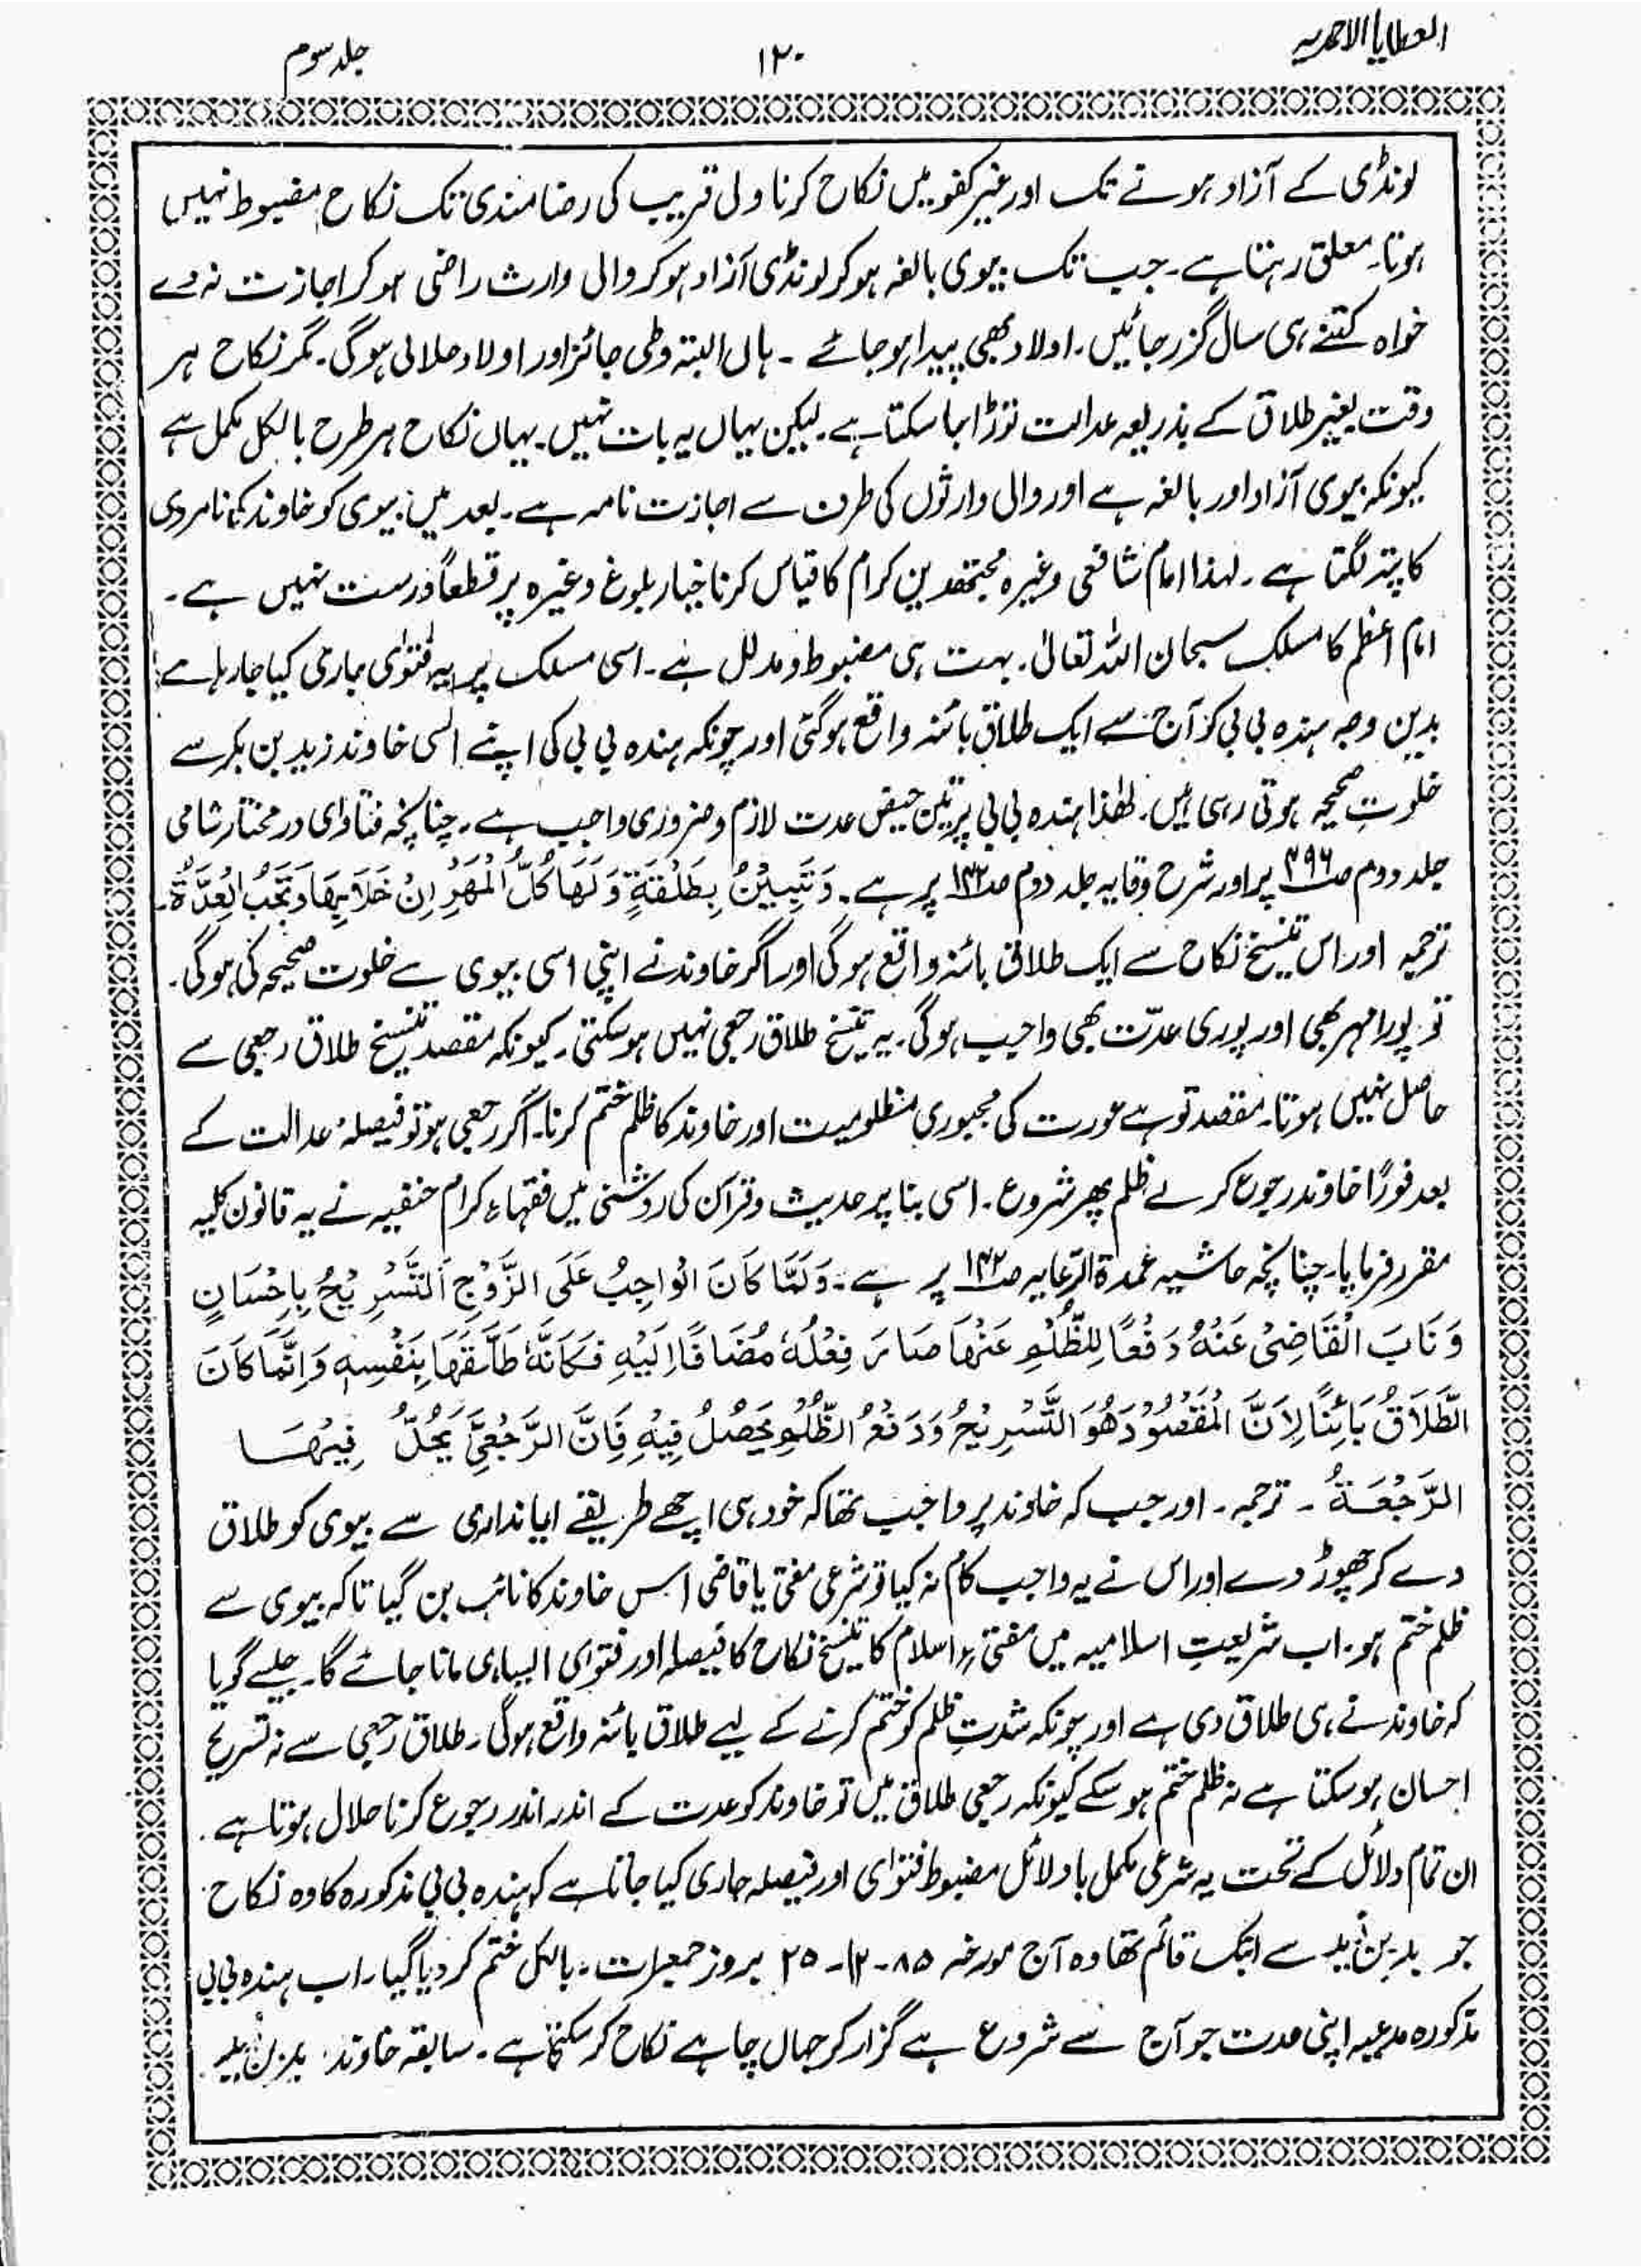 العطایا الاحمدیہ
۱۲۰
جلد سوم
لونڈی کے آزاد ہونے تک اور غیر کفو میں نکاح کرنا ولی قریب کی رضا مندی تک نکاح مضبوط نہیں
ہوتا۔ معلق رہتا ہے۔ جب تک بیوی بالغہ ہو کر لونڈی آزاد ہو کر والی وارث راضی ہو کر اجازت نہ دے
خواہ کتنے ہی سال گزر جائیں۔ اولاد بھی پیدا ہو جائے ۔ ہاں البتہ وطی جائز اور اولاد حلالی ہوگی۔ مگر نکاح ہر
وقت بغیر طلاق کے بذریعہ عدالت توڑا جا سکتا ہے۔ لیکن یہاں یہ بات نہیں۔ یہاں نکاح ہر طرح بالکل مکمل ہے
کیونکہ بیوی آزاد اور بالغہ ہے اور والی وارثوں کی طرف سے اجازت نامہ ہے۔ بعد میں بیوی کو خاوند کی نامردی
کا پتہ لگتا ہے۔ لہذا امام شافعی وغیرہ مجتھدین کرام کا قیاس کرنا خیار بلوغ وغیرہ پر قطعاً درست نہیں ہے۔
امام اعظم کا مسلک سبحان اللہ تعالیٰ۔ بہت ہی مضبوط و مدلل ہے۔ اسی مسلک پر یہ فتوٰی جاری کیا جا رہا ہے
بدین وجہ ہندہ بی بی کو آج سے ایک طلاق بائنہ واقع ہوگئی اور چونکہ ہندہ بی بی کی اپنے اسی خاوند زید بن بکر سے
خلوتِ صحیحہ ہوتی رہی ہیں۔ لھٰذا ہندہ بی بی پر تین حیض عدت لازم و ضروری واجب ہے۔ چنانچہ فتاوٰی درمختار شامی
جلد دوم صـ۴۹۶ پر اور شرح وقایہ جلد دوم صـ۱۴۲ پر ہے۔ وَتَبِيْنُ بِطَلْقَةٍ وَلَهَا كُلُّ الْمَهْرِ اِنْ خَلَا بِهَا وَتَجِبُ الْعِدَّةُ۔
ترجمہ اور اس تنسیخ نکاح سے ایک طلاق بائنہ واقع ہوگی اور اگر خاوند نے اپنی اسی بیوی سے خلوت صحیحہ کی ہوگی۔
تو پورا مہر بھی اور پوری عدّت بھی واجب ہوگی۔ یہ تنسیخ طلاق رجعی نہیں ہو سکتی۔ کیونکہ مقصد تنسیخ طلاق رجعی سے
حاصل نہیں ہوتا۔ مقصد تو ہے عورت کی مجبوری مظلومیت اور خاوند کا ظلم ختم کرنا۔ اگر رجعی ہو تو فیصلہٴ عدالت کے
بعد فورًا خاوند رجوع کر لے ظلم پھر شروع۔ اسی بنا پر حدیث و قرآن کی روشنی میں فقہاءِ کرام حنفیہ نے یہ قانون کلیہ
مقرر فرمایا۔ چنانچہ حاشیہ عُمدۃ الرّعایہ صـ۱۴۲ پر ہے۔ وَلَمَّا كَانَ الْوَاجِبُ عَلَى الزَّوْجِ اَلتَّسْرِيْحُ بِاِحْسَانٍ
وَنَابَ الْقَاضِىْ عَنْهُ دَفْعًا لِلظُّلْمِ عَنْهَا صَارَ فِعْلُهٗ مُضَافًا اِلَيْهِ فَكَاَنَّهٗ طَلَّقَهَا بِنَفْسِهٖ وَاِنَّمَا كَانَ
الطَّلَاقُ بَائِنًا لِاَنَّ الْمَقْصُوْدَ هُوَ التَّسْرِيْحُ وَدَفْعُ الظُّلْمِ يَحْصُلُ فِيْهِ فَاِنَّ الرَّجْعِىَّ يَحُلُّ فِيْهَا
الرَّجْعَةُ ۔ ترجمہ۔ اور جب کہ خاوند پر واجب تھا کہ خود ہی اچھے طریقے ایمانداری سے بیوی کو طلاق
دے کر چھوڑ دے اور اس نے یہ واجب کام نہ کیا تو شرعی مفتی یا قاضی اس خاوند کا نائب بن گیا تاکہ بیوی سے
ظلم ختم ہو۔ اب شریعتِ اسلامیہ میں مفتیِٔ اسلام کا تنسیخ نکاح کا فیصلہ اور فتوٰی ایسا ہی مانا جائے گا۔ جیسے گویا
کہ خاوند نے ہی طلاق دی ہے اور چونکہ شدتِ ظلم کو ختم کرنے کے لیے طلاق بائنہ واقع ہوگی۔ طلاق رجعی سے نہ تسریح
احسان ہو سکتا ہے نہ ظلم ختم ہو سکے کیونکہ رجعی طلاق میں تو خاوند کو عدت کے اندر اندر رجوع کرنا حلال ہوتا ہے۔
ان تمام دلائل کے تحت یہ شرعی مکمل با دلائل مضبوط فتوٰی اور فیصلہ جاری کیا جاتا ہے کہ ہندہ بی بی مذکورہ کا وہ نکاح
جو بن سے ابتک قائم تھا وہ آج مورخہ ۸۵-۱۲-۲۵ بروز جمعرات۔ بالکل ختم کر دیا گیا۔ اب ہندہ بی بی
مذکورہ مدعیہ اپنی عدت جو آج سے شروع ہے گزار کر جہاں چاہے نکاح کر سکتی ہے۔ سابقہ خاوند بن